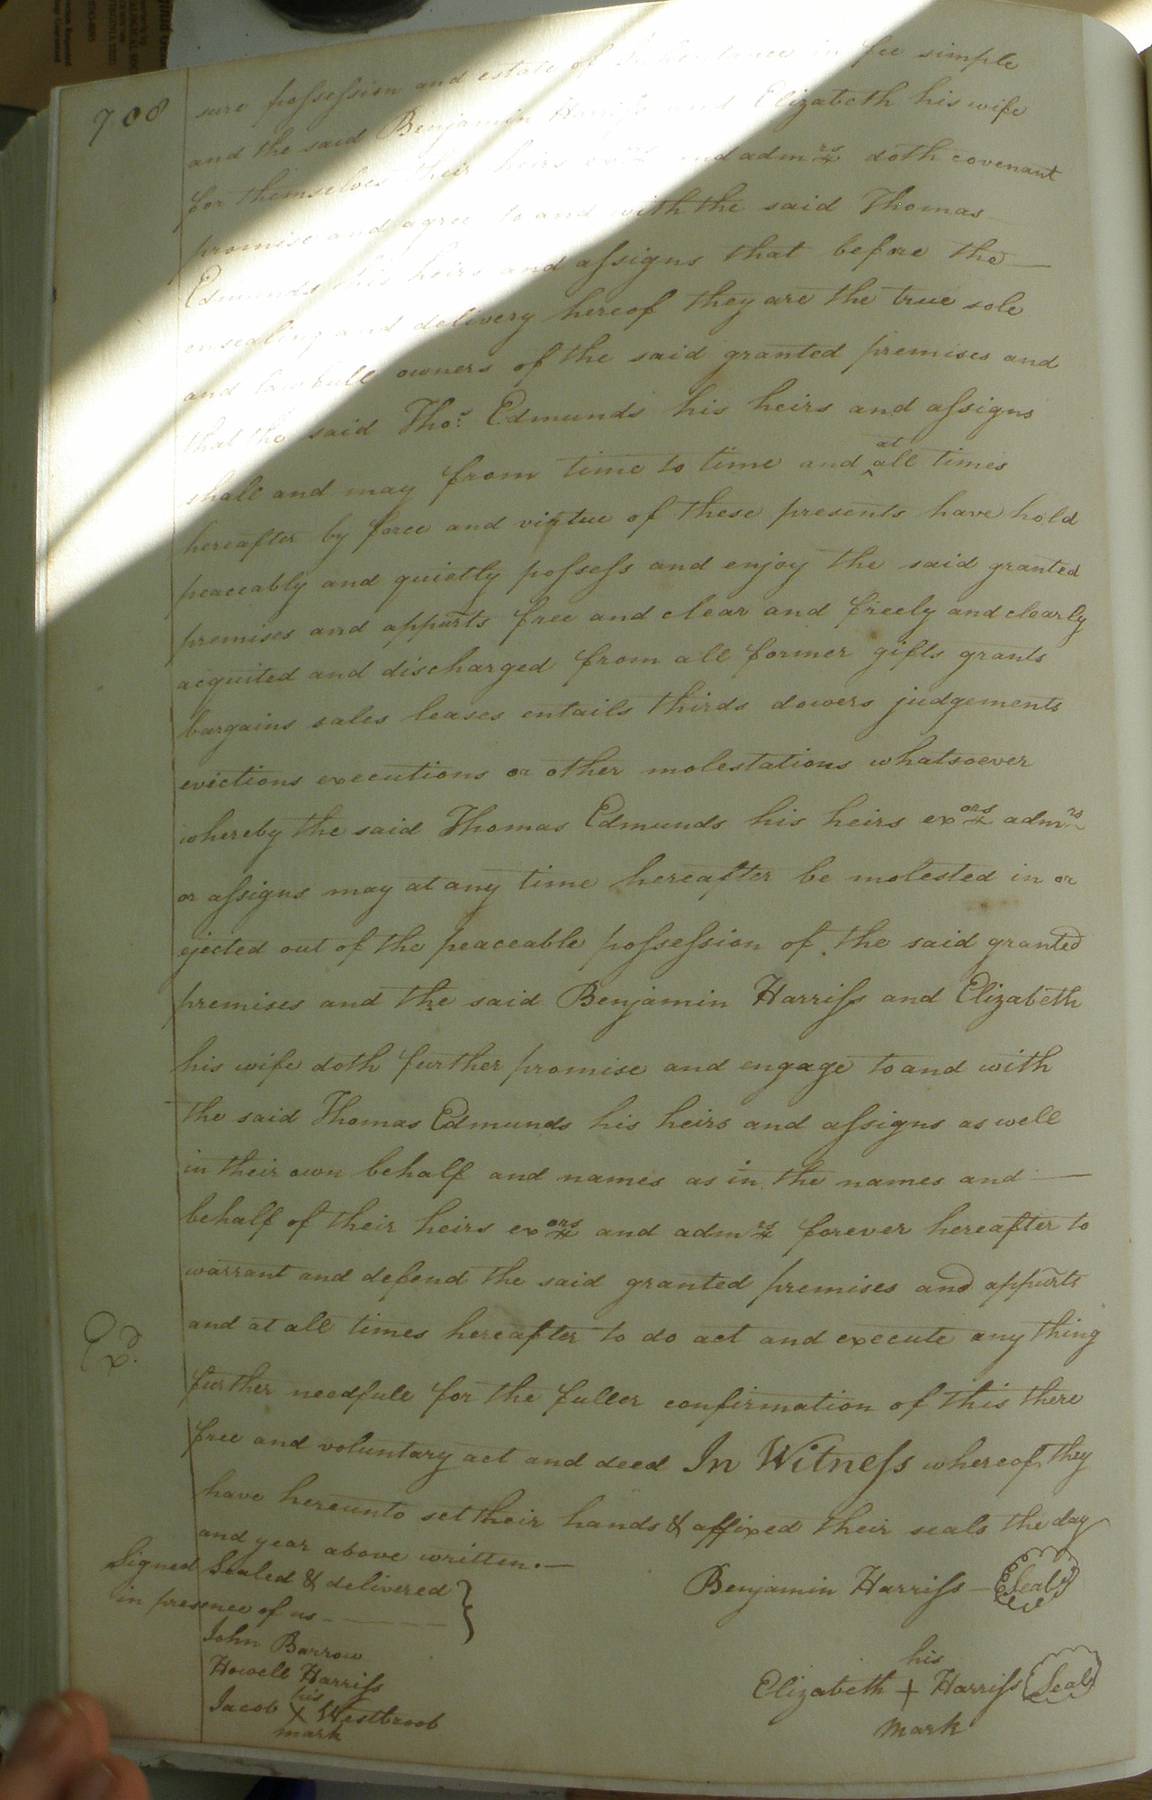 708
sure possession and estate of Inheritance in fee simple
and the said Benjamin Harriss and Elizabeth his wife
for themselves their heirs exors and admrs doth covenant
promise and agree to and with the said Thomas
Edmunds his heirs and assigns that before the
ensealing and delivery hereof they are the true sole
and lawfull owners of the said granted premises and
that the said Thos. Edmunds his heirs and assigns
shall and may from time to time and at all times
hereafter by force and virtue of these presents have hold
peaceably and quietly possess and enjoy the said granted
premises and appurts free and clear and freely and clearly
acquited and discharged from all former gifts grants
bargains sales leases entails thirds dowers judgements
evictions executions or other molestations whatsoever
whereby the said Thomas Edmunds his heirs exors admrs
or assigns may at any time hereafter be molested in or
ejected out of the peaceable possession of the said granted
premises and the said Benjamin Harriss and Elizabeth
his wife doth further promise and engage to and with
the said Thomas Edmunds his heirs and assigns as well
in their own behalf and names as in the names and
behalf of their heirs exors and admrs forever hereafter to
warrant and defend the said granted premises and appurts
and at all times hereafter to do act and execute any thing
Exd.
further needfull for the fuller confirmation of this there
free and voluntary act and deed In Witness whereof they
have hereunto set their hands & affixed their seals the day
and year above written.
Signed Sealed & delivered
in presence of us
Benjamin Harriss Seal
John Barrow
Howell Harriss
Jacob his X Westbroob
mark
his
Elizabeth + Harriss Seal
mark